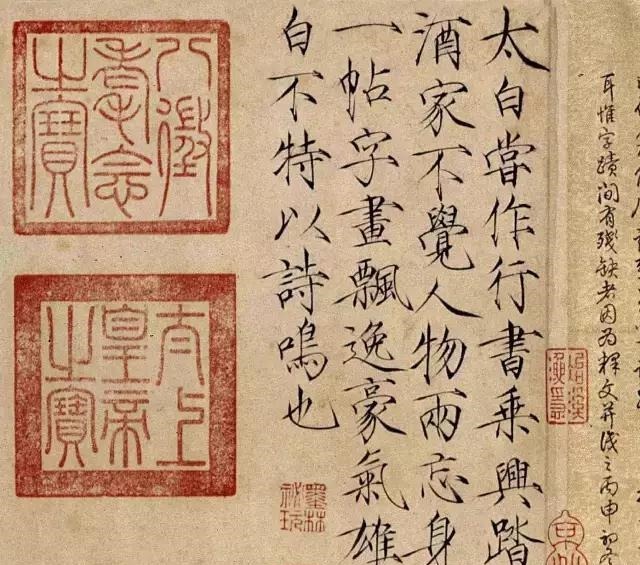 耳惟字蹟間有殘缺者因为釋文并識之丙申初冬
太白嘗作行書乘興踏
酒家不覺人物兩忘身
一帖字畫飄逸豪氣雄
白不特以詩鳴也
墨林祕玩
八徵耄念之寶
太上皇帝之寶